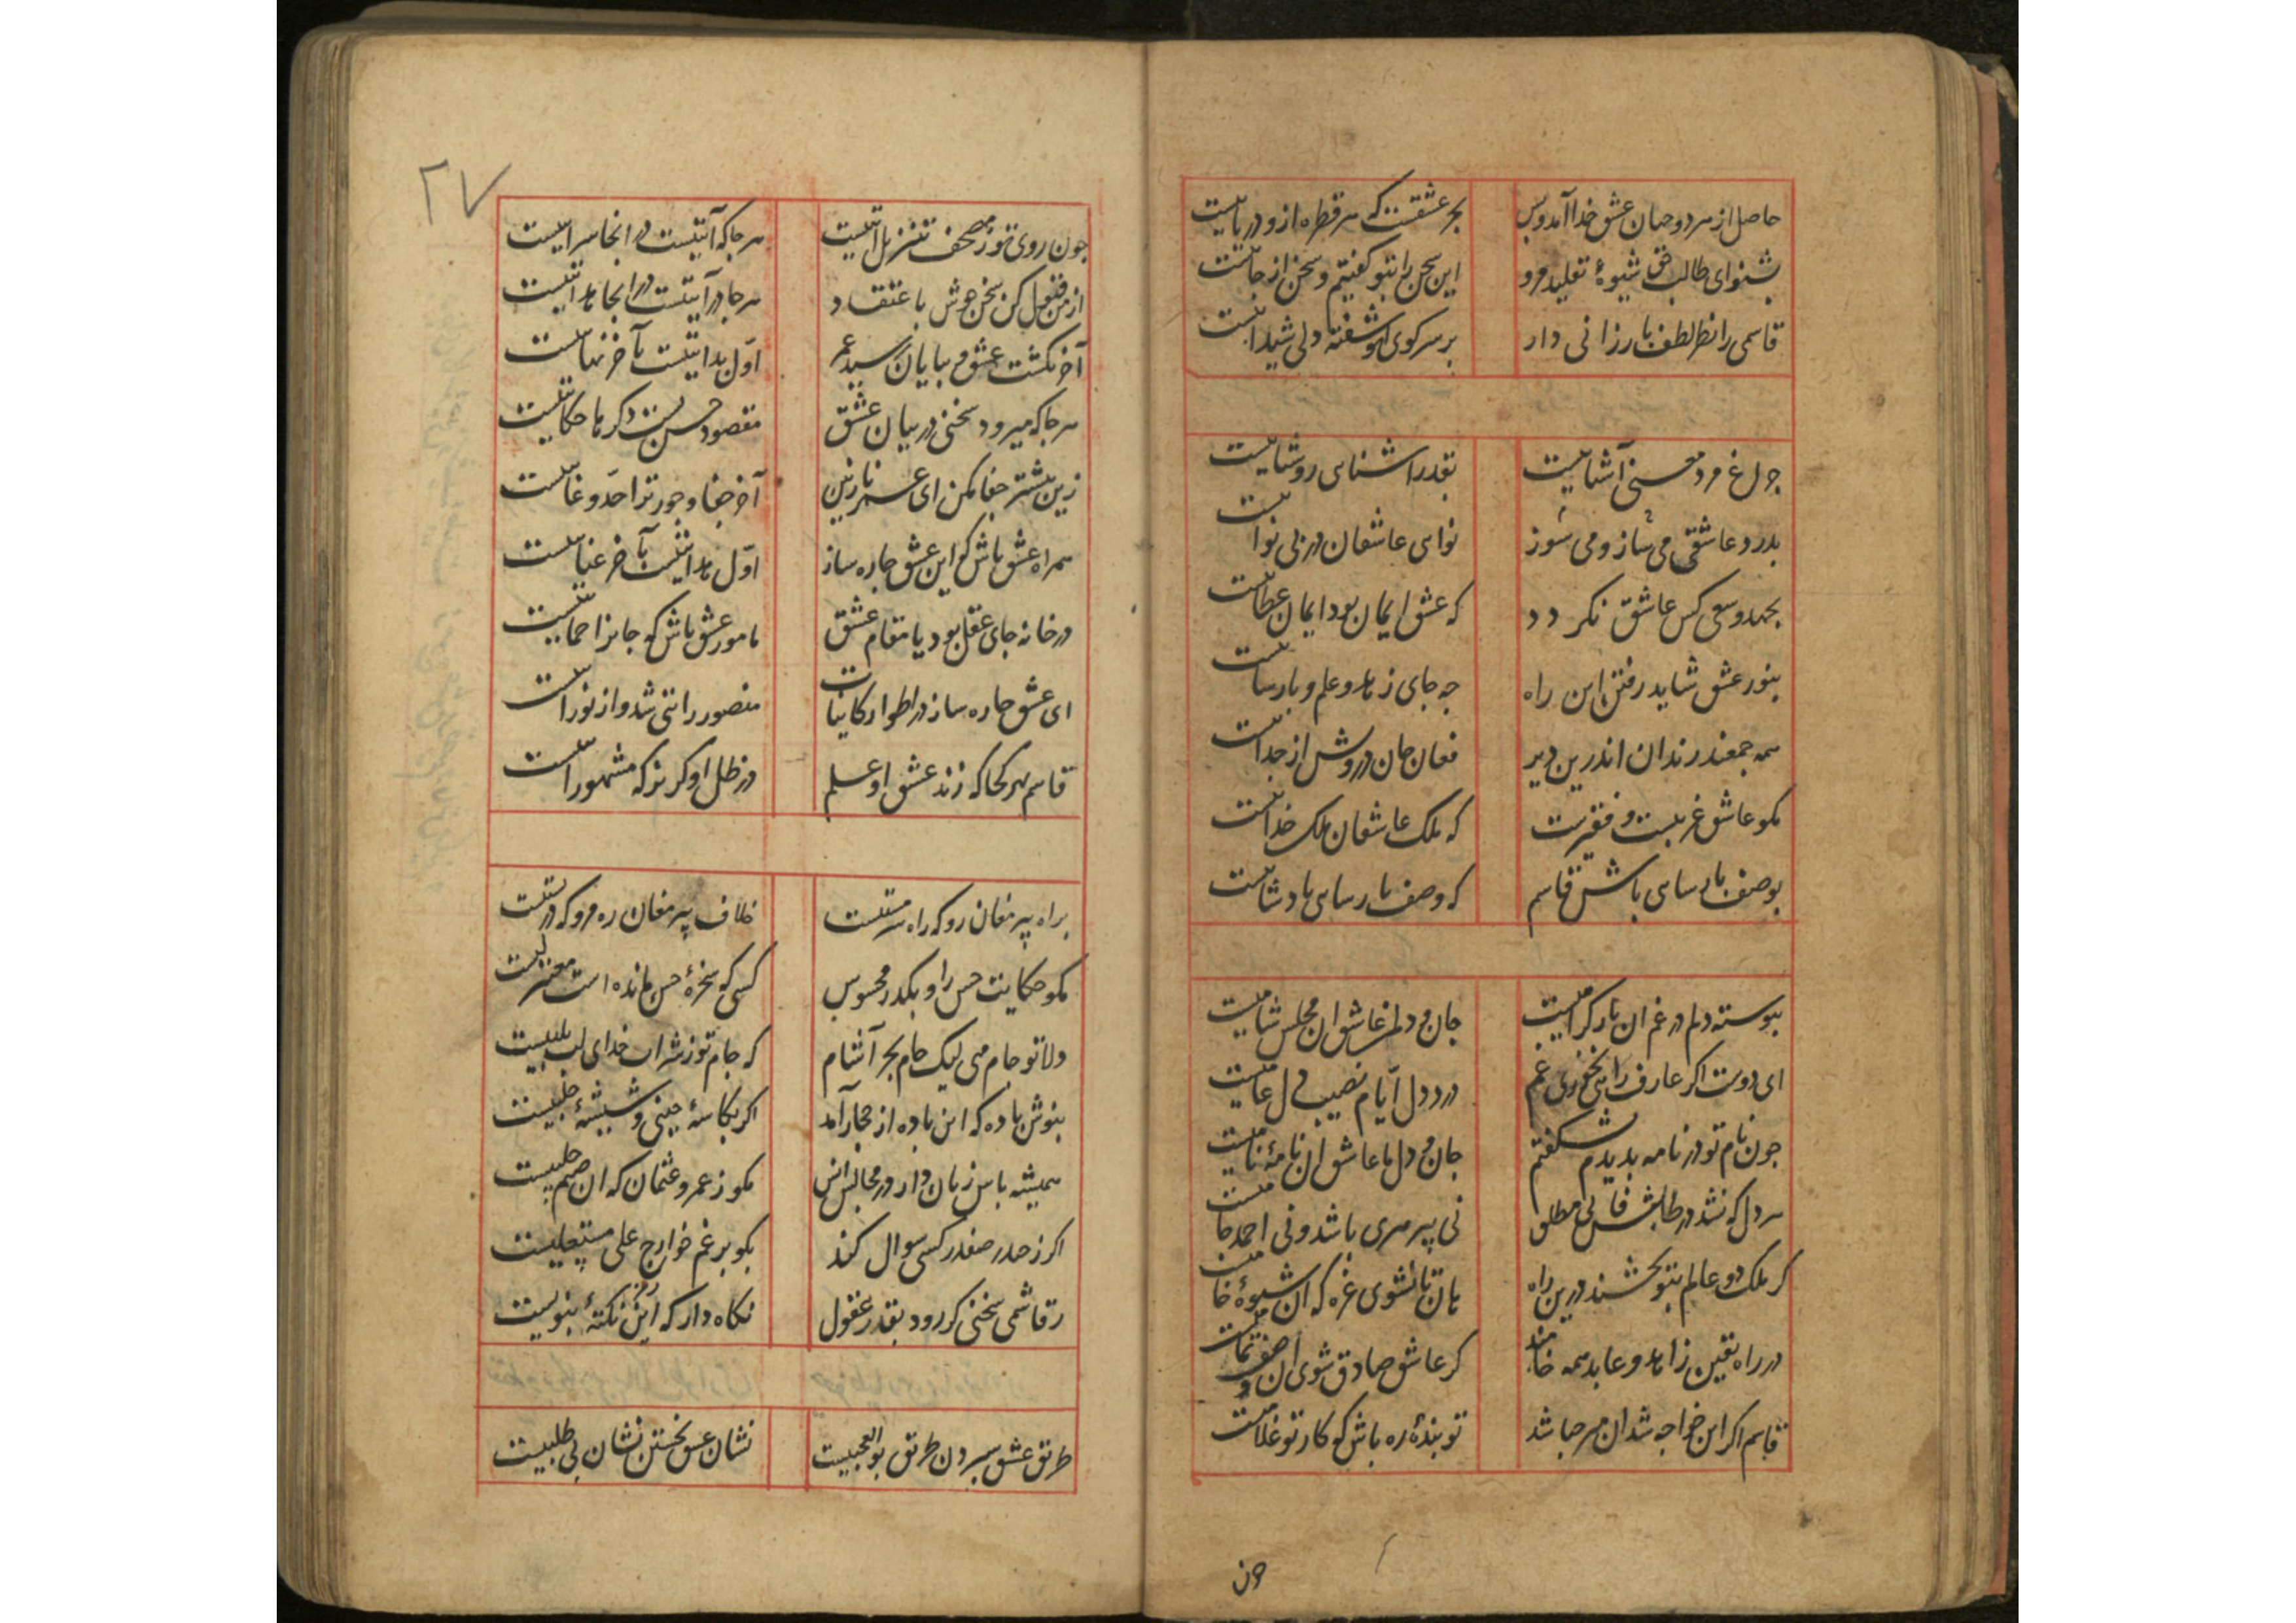 حاصل از هر دو جهان عشق خدا آمد و بس
بحر عشقست که هر قطره ازو دریاییست
بشنو ای طالب حق شیوهٔ تقلید مرو
این سخن را بتو گفتیم و سخن از جاییست
قاسمی را نظر لطف بارزانی دار
بر سر کوی تو آشفته دلی شیداییست
چراغ مرد معنی آشناییست
بقدر آشنایی روشناییست
بدرد عاشقی می ساز و می سوز
نوای عاشقان در بی نواییست
بجهد و سعی کس عاشق نکردد
که عشق ایمان بود ایمان عطاییست
بنور عشق شاید رفتن این راه
چه جای زهد و علم و پارساییست
همه جمعند رندان اندرین دیر
فغان جان درویش از جداییست
مکو عاشق غریبست و فقیرست
که ملک عاشقان ملک خداییست
بوصف پارسایی باش قاسم
که وصف پارسایی پادشاییست
پیوسته دلم در غم آن یار کرامیست
جان و دلم عاشق آن مجلس شامیست
ای دوست اکر عارف رایی نخوری غم
درد دل ایام نصیب دل عامیست
چون نام تو در نامه بدیدم بشکفتم
جان و دل ما عاشق آن نامهٔ نامیست
هر دل که نشد در طلبش فانی مطلق
نی پیر هری باشد و نی احمد جامیست
کر ملک دو عالم بتو بخشند درین راه
هان تا نشوی غره که آن شیوهٔ خامیست
در راه یقین زاهد و عابد همه خامند
کر عاشق صادق شوی آن وصف تمامیست
قاسم اکر این خواجه شد آن میر جها شد
تو بندهٔ ره باش که کار تو غلامیست
چون
۲۷
چون روی تو ز مصحف تنزیل آیتیست
هر جا که آیتیست در آنجا سرایتیست
از من قبول کن سخن خوش باعتقاد
هر جا درایتیست در آنجا هدایتیست
آخر نکشت عشق و بپایان رسید عمر
اول بدایتیست بآخر نهایتیست
هر جا که میرود سخنی در بیان عشق
مقصود حسن تست دکرها حکایتیست
زین بیشتر جفا مکن ای عمر نازنین
آخر جفا و جور ترا حد و غایتیست
همراه عشق باش که این عشق چاره ساز
اول هدایتیست بآخر عنایتیست
در خانه جای عقل بود یا مقام عشق
مامور عشق باش که جانرا حمایتیست
ای عشق چاره ساز در اطوار کاینات
منصور رایتی شد و از تو رایتیست
قاسم بهر کجا که زند عشق او علم
در ظل او کریز که مشهور رایتیست
براه پیر مغان رو که راه سرمستیست
خلاف پیر مغان ره مرو که در پستیست
مکو حکایت حس را و بکذر از محسوس
کسی که سخرهٔ حس مانده است معتزلیست
دلا تو جام می لیک جام بحر آشام
که جام تو ز شراب خدای لب بلبیست
بنوش باده که این باده از حجاز آمد
اکر بکاسهٔ چینی و شیشهٔ حلبیست
همیشه پاس زبان دار در مجالس انس
مکو ز عمرو عثمان که آن صمم جلبیست
اکر ز حیدر صفدر کسی سوال کند
بکو برغم خوارج علی مستعلیست
ز قاسمی سخنی کر رود بقدر عقول
نکاه دار که این رمز نکتهٔ نبویست
طریق عشق سپردن طریق بوالعجبیست
نشان عشق نجستن نشان بی طلبیست